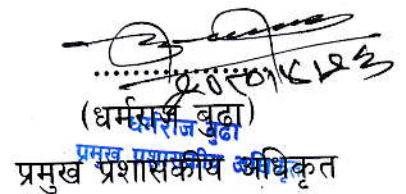 २०८०।५।२३
(धर्मराज बुढा)
धर्मराज बुढा
प्रमुख प्रशासकीय अधिकृत
प्रमुख प्रशासकीय अधिकृत